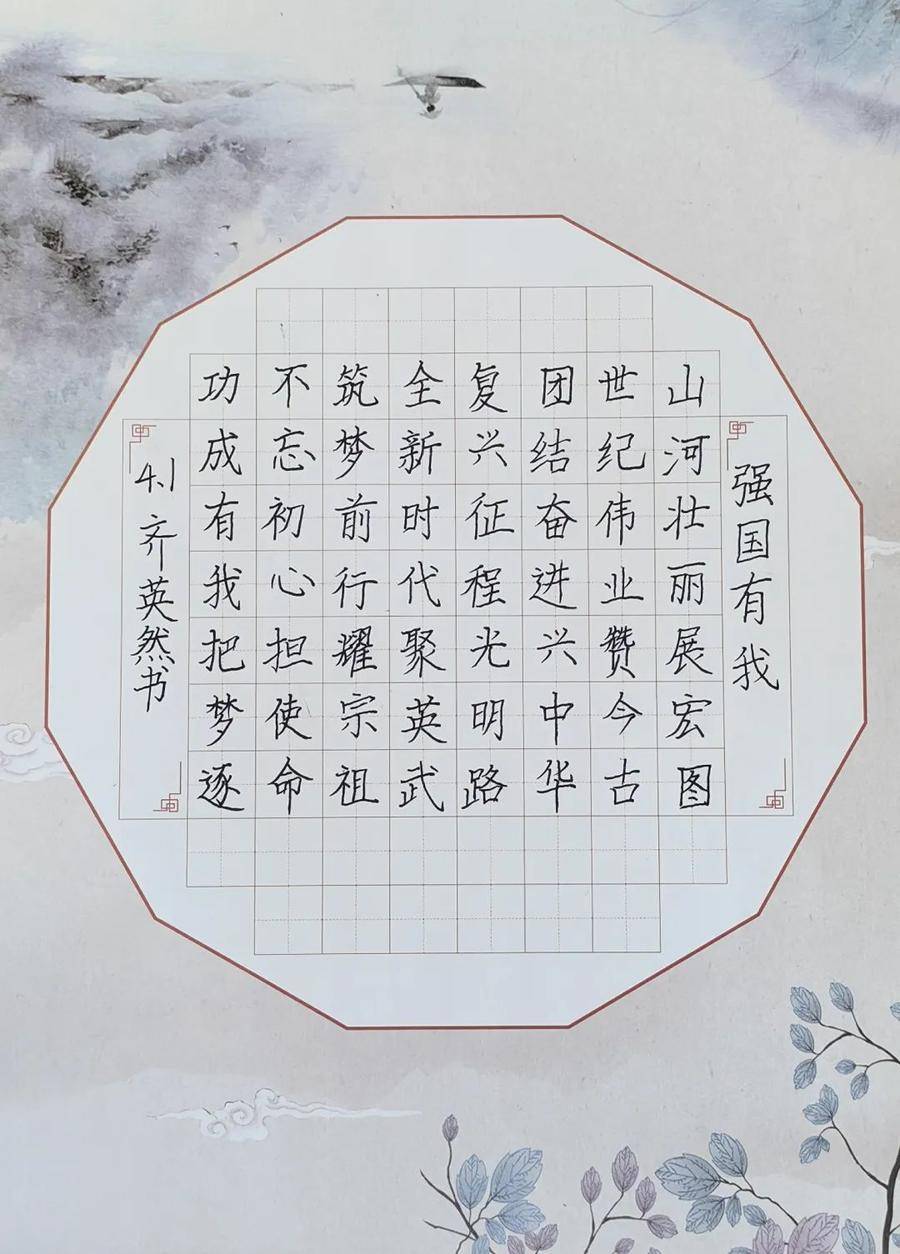 强国有我
山河壮丽展宏图
世纪伟业赞今古
团结奋进兴中华
复兴征程光明路
全新时代聚英武
筑梦前行耀宗祖
不忘初心担使命
功成有我把梦逐
4.1 齐英然书